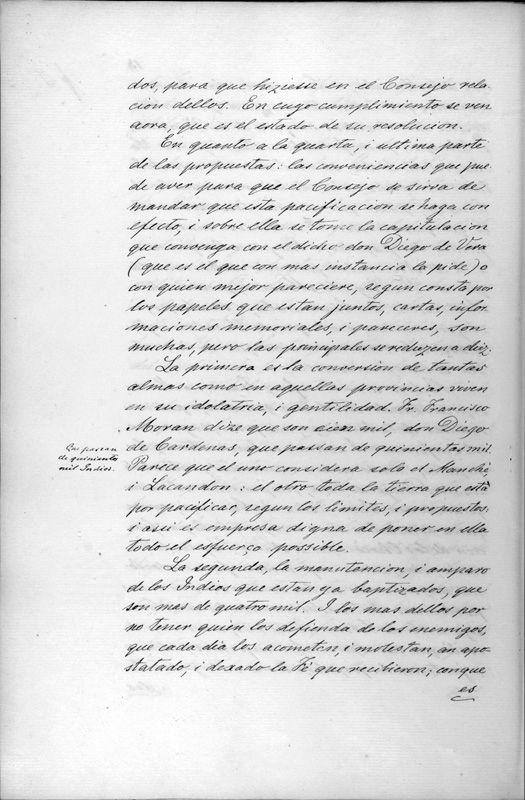 dos, para que hiziesse en el Consejo rela
cion dellos. En cuyo cumplimiento se ven
aora, que es el estado de su resolucion.
En quanto a la quarta, i ultima parte
de las propuestas: las conveniencias que pue
de aver para que el Consejo se sirva de
mandar que esta pacificacion se haga con
efecto, i sobre ella se tome la capitulacion
que convenga con el dicho don Diego de Vera
(que es el que con mas instancia la pide) o
con quien mejor pareciere, segun consta por
los papeles que estan juntos, cartas, infor
maciones memoriales, i pareceres, son
muchas, pero las principales se reduzen a diez.
La primera es la conversion de tantas
almas como en aquellas provincias viven
en su idolatria, i gentilidad. Fr. Francisco
Moran dize que son cien mil, don Diego
de Cardenas, que passan de quinientos mil.
Que passan
de quinientos
mil Indios.
Parece que el uno considera solo el Manché
i Lacandon: el otro toda la tierra que está
por pacificar, segun los limites, i propuestos,
i assi es empresa digna de poner en ella
todo el esfuerço possible.
La segunda, la manutencion, i amparo
de los Indios que estan ya baptizados, que
son mas de quatro mil. I los mas dellos por
no tener quien los defienda de los enemigos,
que cada dia los acometen, i molestan, an apo-
statado, i dexado la Fé que recibieron; conque
es